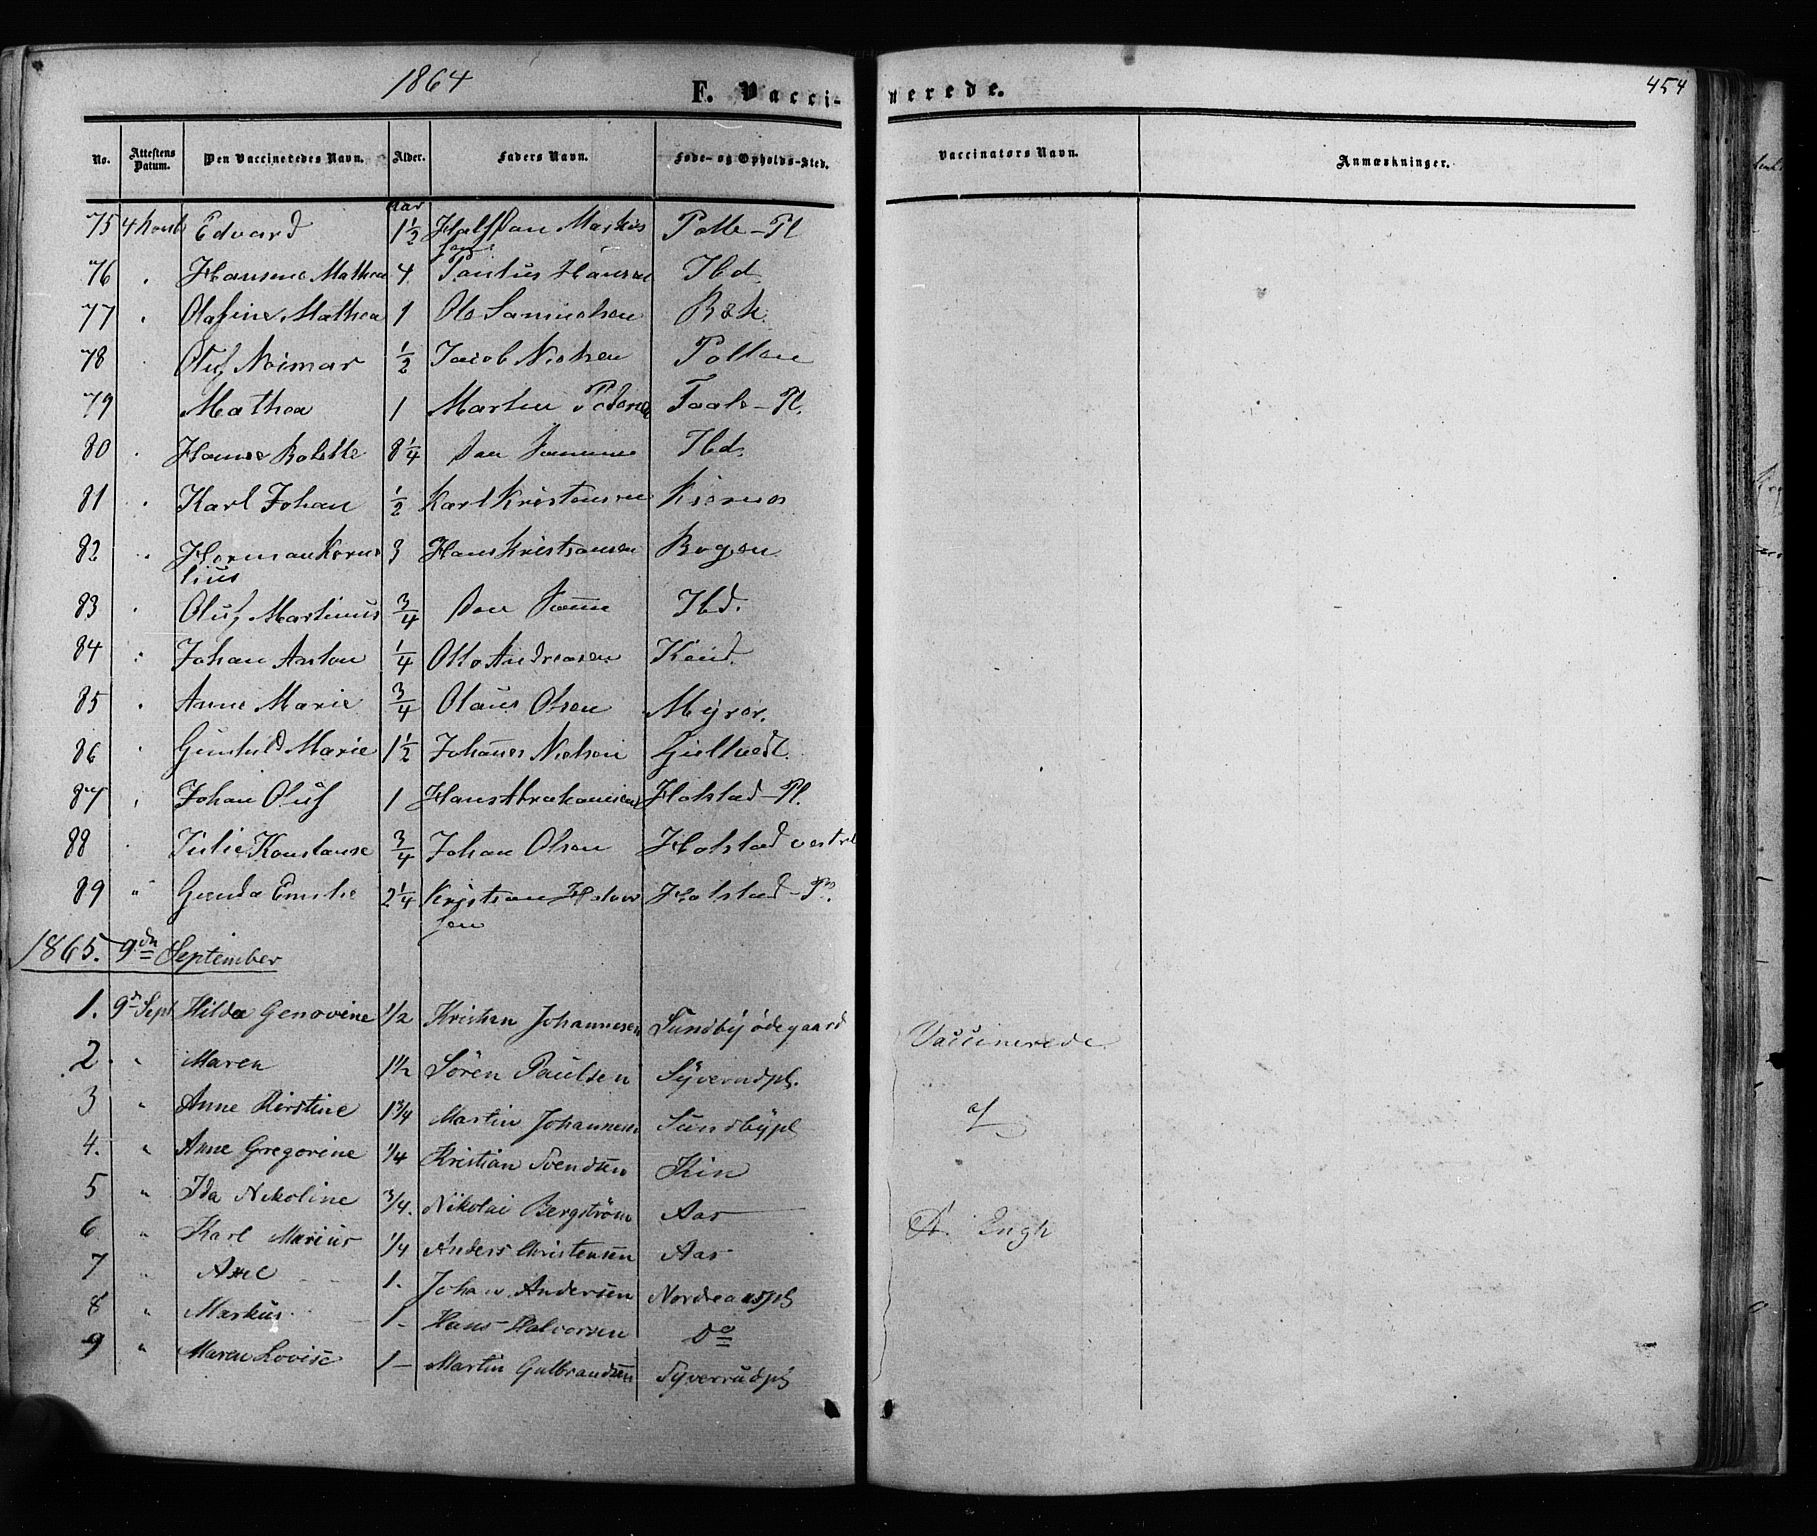 1864
F. Vacci-
nerede.
454
No. Attestens Datum. Den Vaccineredes Navn. Alder. Faders Navn. Føde- og Opholds-Sted. Vaccinators Navn. Anmærkninger.
Aar
75 Edvard 1½ Halfdan Markus Polle-Pl
sen
76 " Hansine Mathea 4 Paulus Hansen Ibd.
77 " Olafine Mathea 1 Ole Samuelsen Bæk.
78 " Oluf 1/2 Jacob Nielsen Pollen
79 Mathea 1 Martin Pedersen Taale-Pl.
80 " Hanne Bolette 8¼ den Samme Ibd.
81 " Karl Johan 1/2 Karl Kristensen Kjernes
82 " Herman Korne 3 Hans Kristiansen Bogen
lius
83 " Oluf Martinus 3/4 den Samme Ibd.
84 " Johan Anton 1/4 Otto Andreasen
85 " Anne Marie 3/4 Olaus Olsen Myrer.
86 " Gunhild Marie 1½ Johanes Nielsen Gieltvedt.
87 " Johan Oluf 1 Hans Abrahamsen Holstad-Pl.
88 " Julie Konstanse 3/4 Johan Olsen Holstad vestre
89 " Gunda Emilie 2¼ Kristian Halvor Holstad-Pl.
sen
1865. 9de September
1. 9d Sept Hilda Genovine 1/2 Kristian Johannesen Sundby ødegaard
Vaccinerede
2 " Maren 1½ Søren Paulsen Syverudpl.
3 " Anne Kirstine 1 3/4 Martin Johannesen Sundbypl
af
4. " Anne Gregorine 1/4 Kristian Svendsen Kin
5 " Ida Nikoline 3/4. Nikolai Bergström Aas
6 " Karl Marius 1/4 Anders Christensen Aas
A. Engh
7 " Axel 1. Johan Andersen Nordreaaspl
8 " Markus 1- Hans Halvorsen do
9 " Maren Lovise 1- Martin Gulbrandsen Syverrudpl